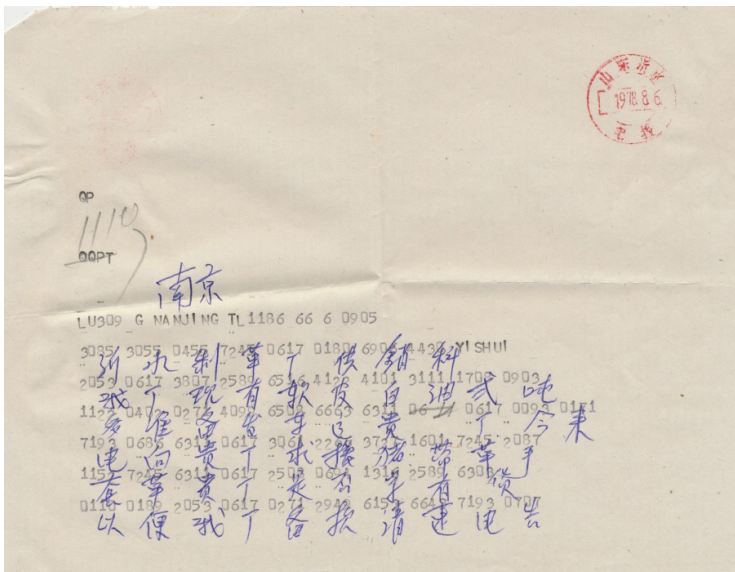 山东沂水
1978.8.6
电报
QP
1110
QQPT
南京
LU309 G NANJING TL1186 66 6 0905
3085 3055 0455 7245 0617 0180 6904 4430 YISHUI
沂水制革厂供销科
2053 0617 3807 2589 6516 4122 4101 3111 1708 0903
我厂现有软皮白油弍吨
1122 0402 0271 4099 6508 6663 6311 0617 0093 0171
多准备发车运贵厂今来
7193 0686 6311 0617 3061 2255 3732 1601 7245 2087
电向贵厂求换猪带革手
1153 7245 6311 0617 2508 0694 1311 2589 6303
套革贵厂是否有货
0110 0189 2053 0617 0271 2943 6153 6643 7193 0707
以便我厂备换请速电告